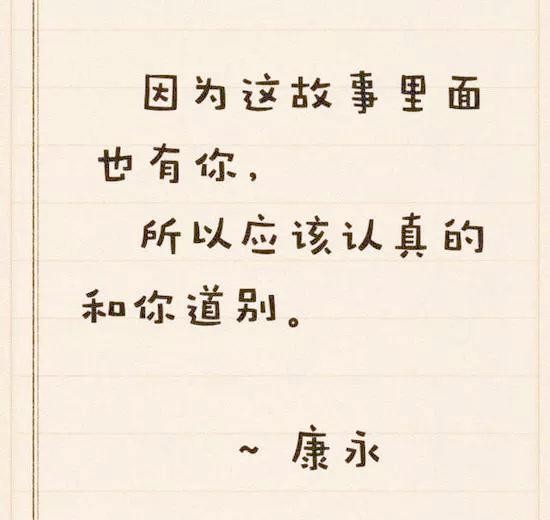 因为这故事里面
也有你，
所以应该认真的
和你道别。
~康永